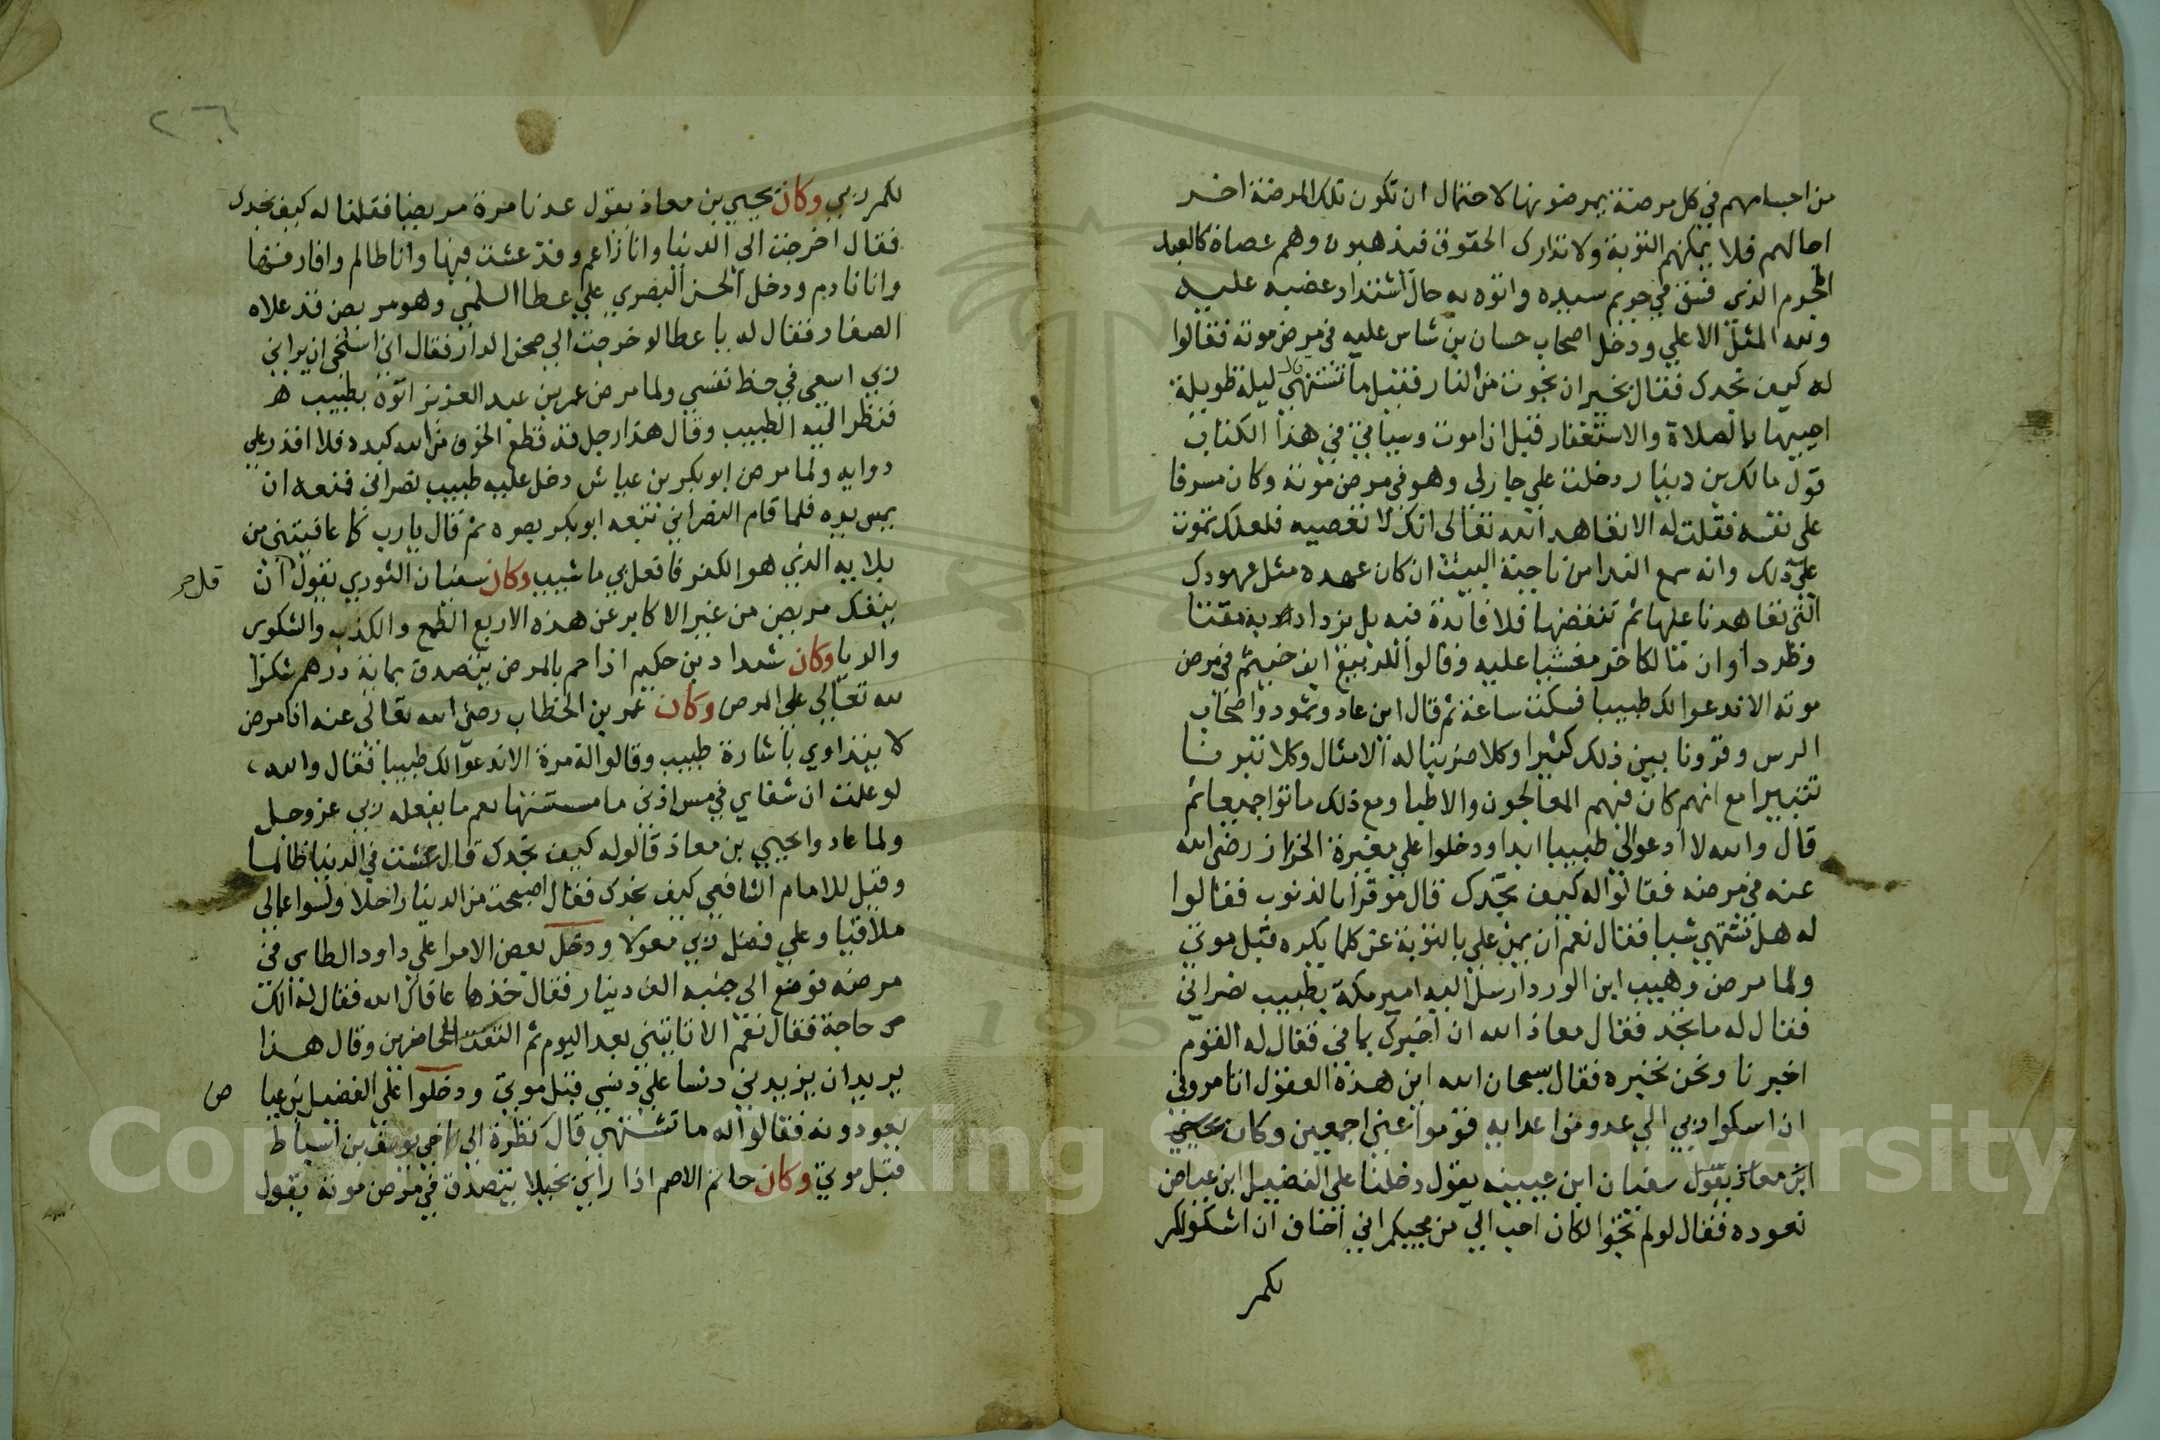 من اجسامهم في كل مرضة يمرضونها لاحتمال ان تكون تلك المرضة اخر
اجالهم فلا يمكنهم التوبة ولا تدارك الحقوق فيذهبون وهم عصاة كالعبد
المجرم الذي فسق في حريم سيده واتوه به حال اشتداد غضبه عليه
ولله المثل الاعلي ودخل اصحاب حسان بن شاس عليه في مرض موته فقالوا
له كيف تجدك فقال بخير ان نجوت من النار فقيل ما تشتهي قال ليلة طويلة
احييها بالصلاة والاستغفار قبل ان اموت وسياتي في هذا الكتاب
قول مالك بن دينار دخلت علي جار لي وهو في مرض موته وكان مسرفا
على نفسه فقلت له الا تعاهد الله تعالى انك لا تعصيه فلعلك تموت
علي ذلك وانه سمع الندا من ناحية البيت ان كان عهده مثل عهودك
التي تعاهدنا عليها ثم تنقضها فلا فائدة فيه بل يزداد به مقتنا
وطردا وان مالكا خر مغشيا عليه وقالوا للربيع ابن خيثم في مرض
موته الا ندعوا لك طبيبا فسكت ساعة ثم قال اين عاد وثمود واصحاب
الرس وقرونا بين ذلك كثيرا وكلا ضربنا له الامثال وكلا تبرنا
تتبيرا مع انهم كان فيهم المعالجون والاطبا ومع ذلك ماتوا جميعا ثم
قال والله لا ادعوا لي طبيبا ابدا ودخلوا علي مغيرة الخراز رضى الله
عنه في مرضه فقالوا له كيف تجدك قال موقرا بالذنوب فقالوا
له هل تشتهي شيا فقال نعم ان يمن علي بالتوبة عن كلما يكره قبل موتي
ولما مرض وهيب ابن الورد ارسل اليه امير مكة بطبيب نصراني
فقال له ما تجد فقال معاذ الله ان اخبرك بما في فقال له القوم
اخبرنا ونحن نخبره فقال سبحان الله اين هذه العقول اتامروني
ان اشكوا ربي الي عدو من اعدايه قوموا عني اجمعين وكان
ابن معاذ يقول سفيان ابن عيينه يقول دخلنا على الفضيل ابن عياض
نعوده فقال لو لم تجوا لكان احب الي من مجيكم اني اخاف ان اشكو لكم
لكم
٢٦
لكم ربي وكان يحيي بن معاذ يقول عدنا مرة مريضا فقلنا له كيف تجدك
فقال اخرجت الي الدنيا وانا راغم وقد عشت فيها وانا ظالم وافارقها
وانا نادم ودخل الحسن البصري علي عطا السلمي وهو مريض قد علاه
الصفار فقال له يا عطا لو خرجت الي صحن الدار فقال اني استحي ان يراني
ربي اسعي في حظ نفسي ولما مرض عمر بن عبد العزيز اتوه بطبيب
فنظر اليه الطبيب وقال هذا رجل قد قطع الخوف من الله كبده فلا اقدر علي
دوايه ولما مرض ابو بكر بن عياش دخل عليه طبيب نصراني فمنعه ان
يمس يده فلما قام النصراني تتبعه ابو بكر بصره ثم قال يا رب كما عافيتني من
بلايه الذي هو الكفر فافعل بي ما شيت وكان سفيان الثوري يقول ان
قل
ينفك مريض من غير الاكابر عن هذه الاربع الطمع والكذب والشكوى
والريا وكان شداد بن حكيم اذا حم بالمرض يتصدق بماية درهم شكرا
لله تعالي علي المرض وكان عمر بن الخطاب رضي الله تعالى عنه اذا مرض
لا يتداوي باشارة طبيب وقالوا له مرة الا ندعوا لك طبيبا فقال والله
لو علمت ان شفاي في مس اذني ما مسستها نعم ما يفعله ربي عز وجل
ولما عادوا يحيي بن معاذ قالوا له كيف تجدك قال عشت في الدنيا ظالما
وقيل للامام الشافعي كيف تجدك فقال اصبحت من الدنيا راحلا ولسوا عمالي
ملاقيا وعلي فضل ربي معولا ودخل بعض الامرا علي داود الطاي في
مرضه فوضع الي جنبه الف دينار فقال خذها عافاك الله فقال له الك
من حاجة فقال نعم الا تاتيني بعد اليوم ثم التفت للحاضرين وقال هذا
يريد ان يزيدني دنسا علي دنسي قبل موتي ودخلوا علي الفضيل بن عيا
ض
يعودونه فقالوا له ما تشتهي قال نظرة الى اخي يوسف بن اسباط
قبل موتي وكان حاتم الاصم اذا راي بخيلا يتصدق في مرض موته يقول
Copyright © King Saud University
195